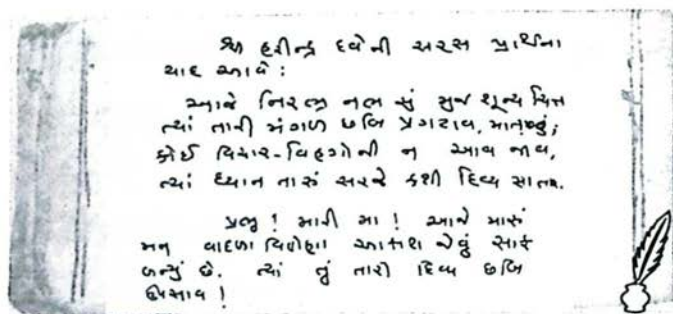 શ્રી હરીન્દ્ર દવેની સરસ પ્રાર્થના
યાદ આવે :
આજે નિરભ્ર નભ સું મુજ શૂન્ય ચિત્ત
ત્યાં તારી મંગળ છબિ પ્રગટાવ, માતા
કોઈ વિચાર-વિહગોની ન આવ જાવ,
ત્યાં ધ્યાન તારું સરજે કશી દિવ્ય
પ્રભુ ! મારી મા ! આજે મારું
મન વાદળ વિહોણા આકાશ જેવું સાફ
બન્યું છે. ત્યાં તું તારી દિવ્ય છબિ
ઉપસાવ !